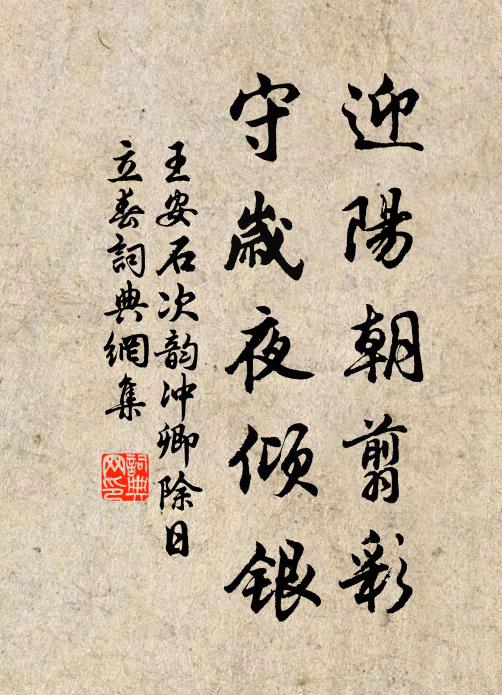 迎陽朝翦彩
守歲夜傾銀
王安石次韵冲卿除日
立春詞典網集
詞典
网印